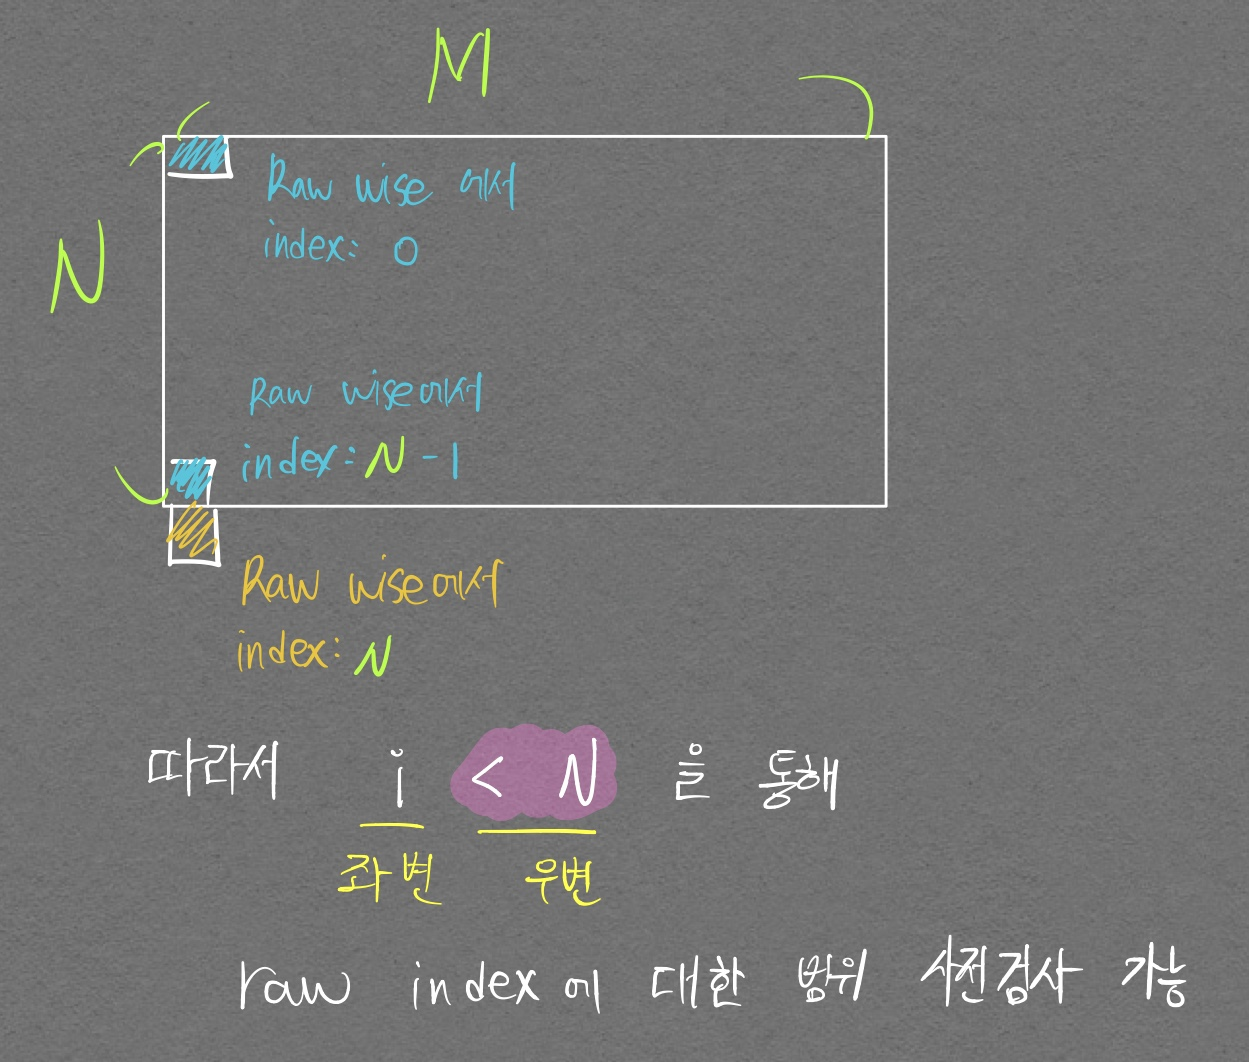 M
N
Raw wise 에서
index: 0
Raw wise에서
index: N - 1
Raw wise에서
index: N
따라서 i < N 을 통해
좌변 우변
raw index에 대한 범위 사전검사 가능